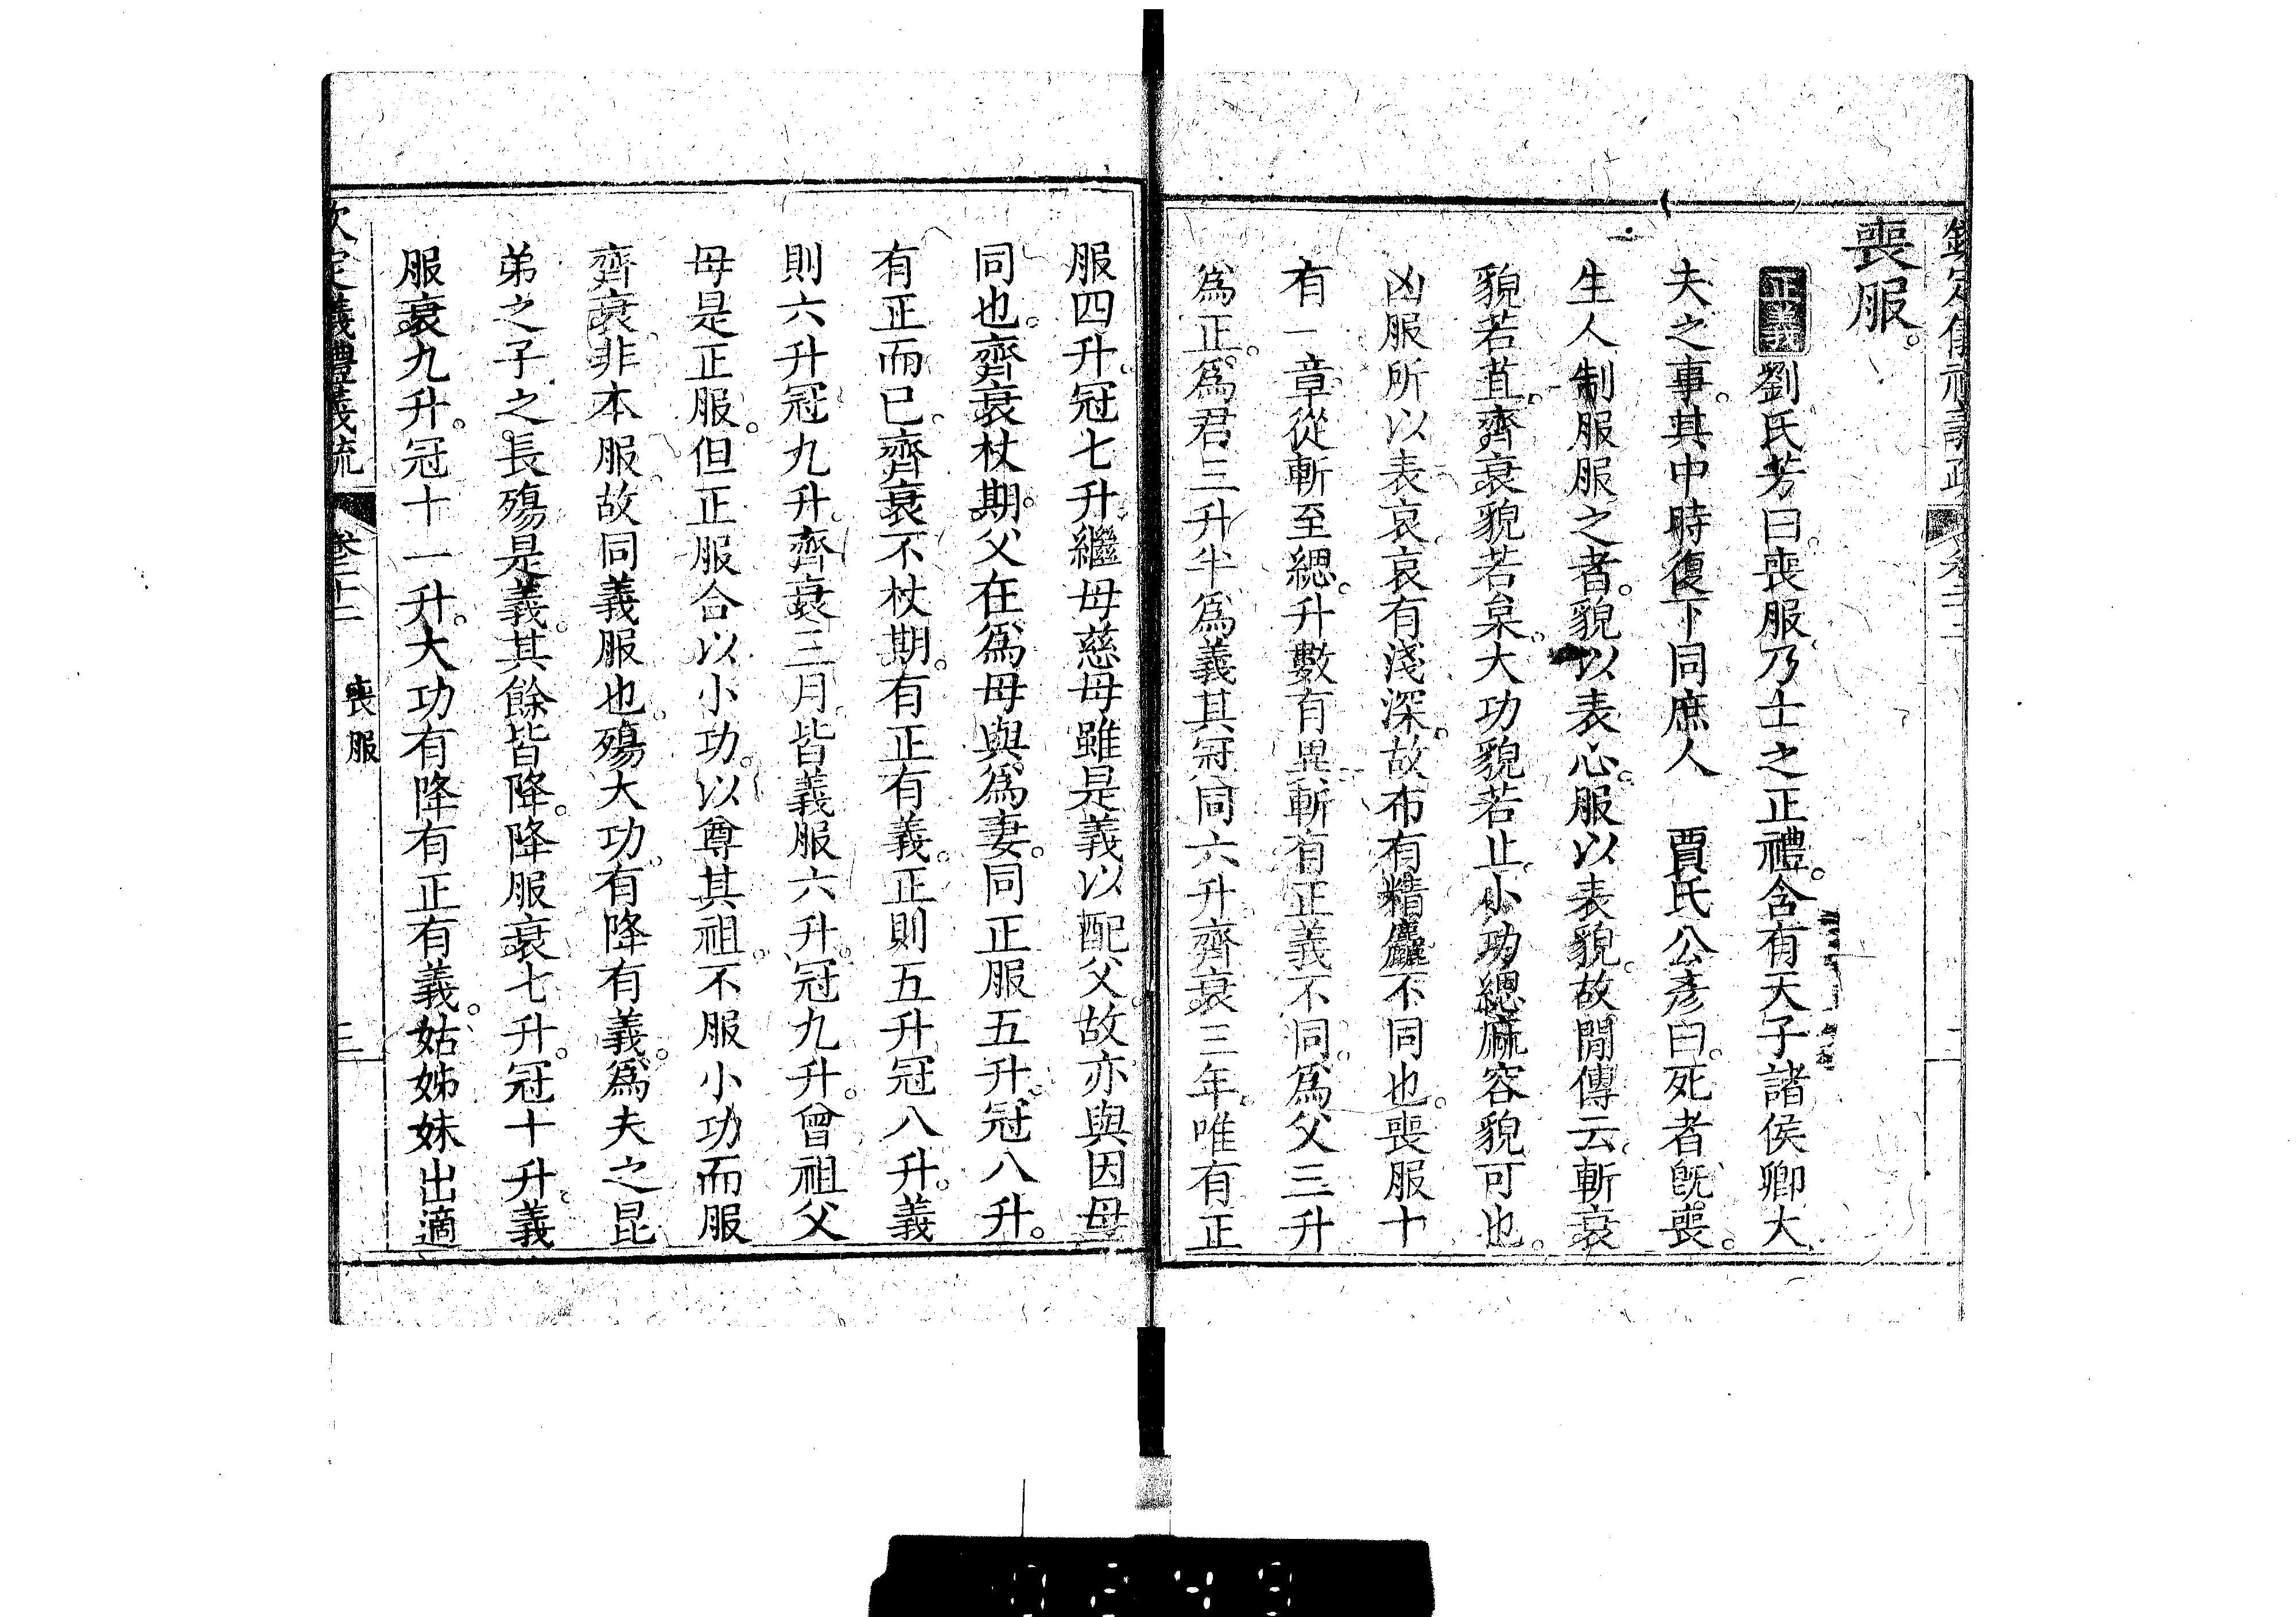 喪服。
正義劉氏芳曰喪服乃士之正禮。含有天子諸侯卿大
夫之事。其中時復下同庶人　賈氏公彥曰。死者旣喪。
生人制服服之者。貌以表心。服以表貌。故閒傳云斬衰
貌若苴。齊衰貌若枲。大功貌若止。小功緦麻容貌可也。
凶服所以表哀。哀有淺深。故布有精麤不同也。喪服十
有一章從斬至緦。升數有異。斬有正義不同。爲父三升
爲正。爲君三升半爲義其冠同六升齊衰三年。唯有正
服四升。冠七升。繼母慈母雖是義以配父。故亦與因母
同也。齊衰杖期。父在爲母與爲妻。同正服五升。冠八升。
有正而已。齊衰不杖期。有正有義。正則五升冠八升。義
則六升冠九升。齊衰三月皆義服六升。冠九升。曾祖父
母是正服。但正服合以小功。以尊其祖。不服小功而服
齊衰。非本服。故同義服也。殤大功。有降有義。爲夫之昆
弟之子之長殤是義。其餘皆降。降服衰七升。冠十升。義
服衰九升。冠十一升。大功有降有正有義。姑姊妹出適
欽定義禮義疏　卷二十二　喪服　三